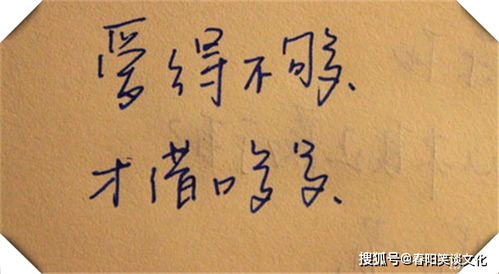 爱得不够、
才借口多多、
搜狐号@春阳笑谈文化